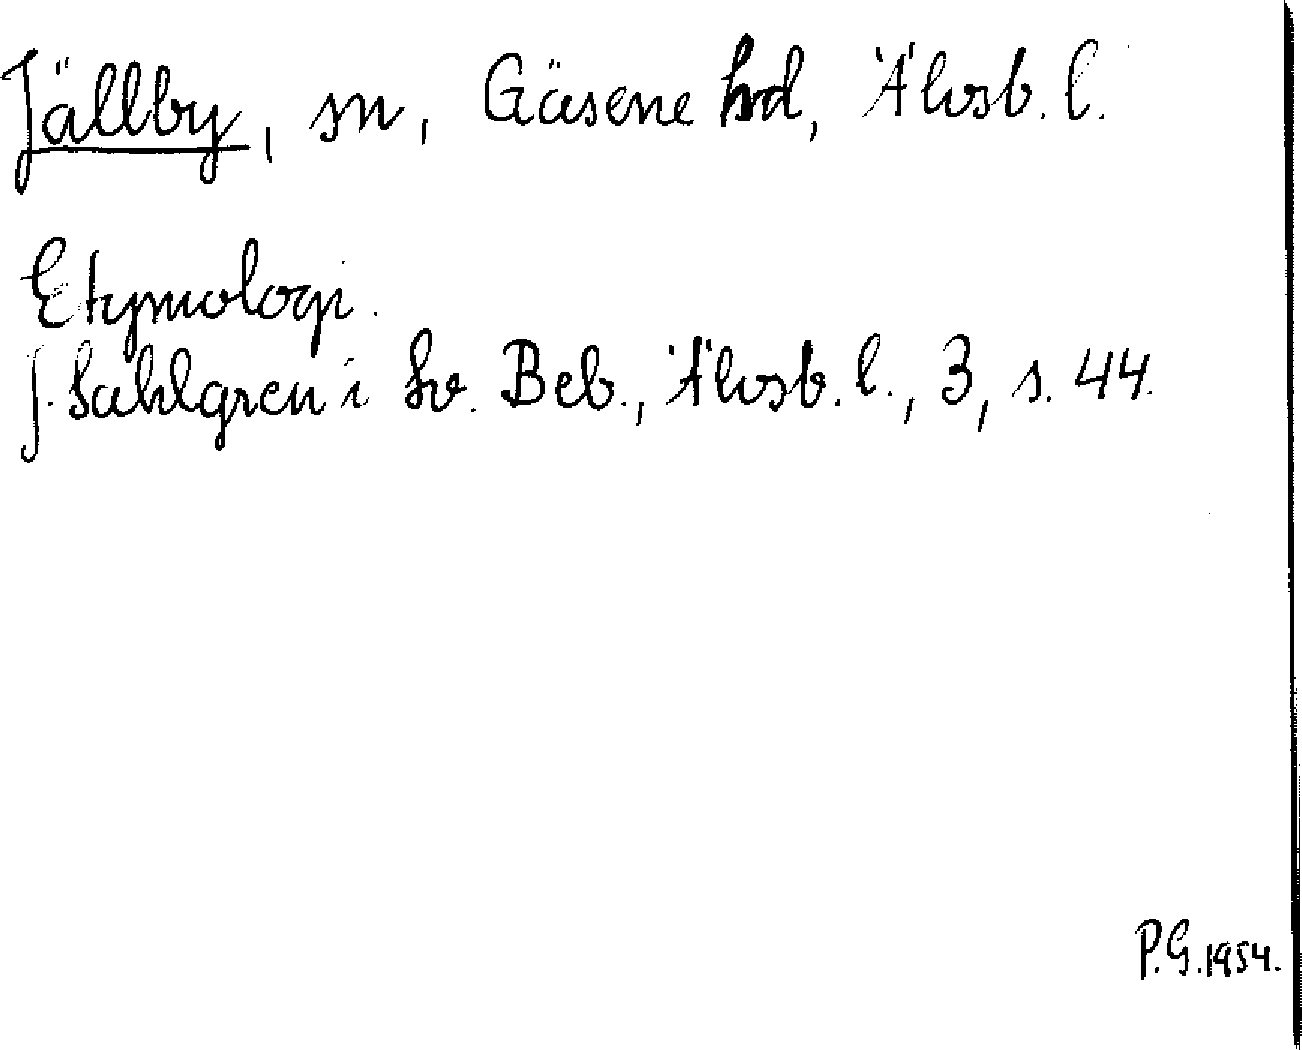 Jällby, sn, Gäsene hd, Älvsb. l.
Etymologi.
J. Sahlgren i Sv. Beb., Älvsb. l., 3, s. 44.
P.G. 1954.